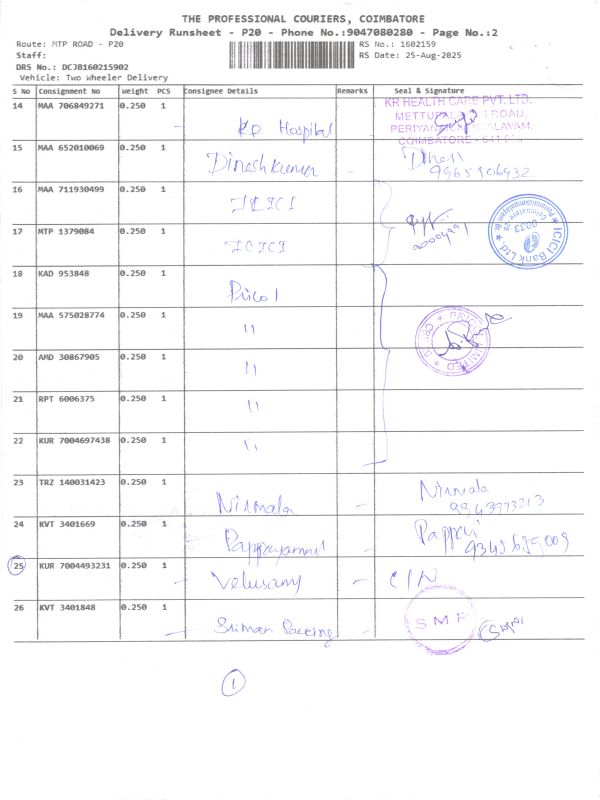 THE PROFESSIONAL COURIERS, COIMBATORE
Delivery Runsheet - P20 - Phone No.:9047080280 - Page No.:2
Route: MTP ROAD - P20
RS No.: 1602159
Staff:
RS Date: 25-Aug-2025
DRS No.: DCJB160215902
Vehicle: Two Wheeler Delivery
S No Consignment No Weight PCS Consignee Details Remarks Seal & Signature
14 MAA 706849271 0.250 1 KR Hospital
KR HEALTH CARE PVT. LTD.
ROAD,
COIMBATORE
15 MAA 652010069 0.250 1 Dineshkumar
16 MAA 711930499 0.250 1 ICICI
17 MTP 1379084 0.250 1 ICICI
ICICI Bank Ltd.
Coimbatore
18 KAD 953848 0.250 1 Pricol
19 MAA 575028774 0.250 1 "
20 AMD 30867905 0.250 1 "
21 RPT 6006375 0.250 1 "
22 KUR 7004697438 0.250 1 "
23 TRZ 140031423 0.250 1 Nirmala - Nirmala
24 KVT 3401669 0.250 1
25 KUR 7004493231 0.250 1 Velusamy
26 KVT 3401848 0.250 1 Suman Packing
SMP
1